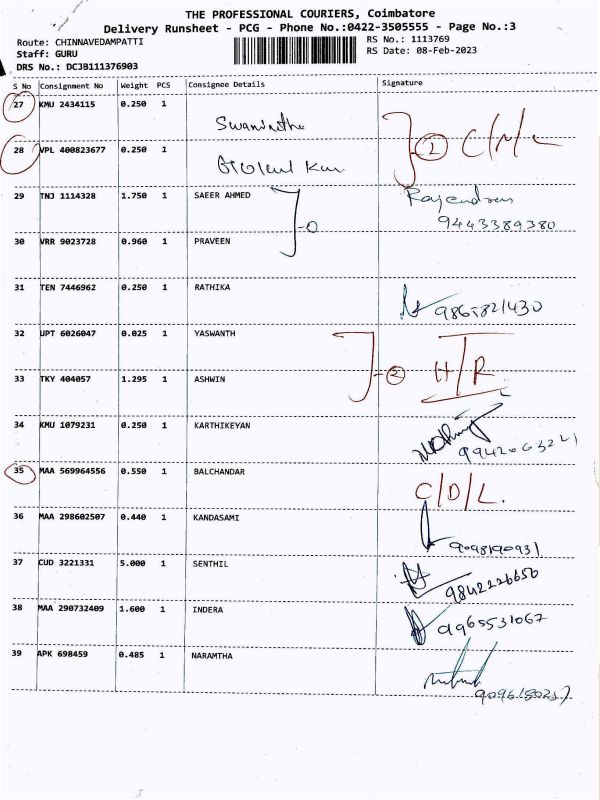 THE PROFESSIONAL COURIERS, Coimbatore
Delivery Runsheet - PCG - Phone No.:0422-3505555 - Page No.:3
Route: CHINNAVEDAMPATTI
RS No.: 1113769
Staff: GURU
RS Date: 08-Feb-2023
DRS No.: DCJB111376903
S No Consignment No Weight PCS Consignee Details Signature
27 KMU 2434115 0.250 1
28 VPL 400823677 0.250 1
② C/N/L
29 TNJ 1114328 1.750 1 SAEER AHMED Rajendran
9443389380
30 VRR 9023728 0.960 1 PRAVEEN
31 TEN 7446962 0.250 1 RATHIKA
9865821430
32 UPT 6026047 0.025 1 YASWANTH
② H/R
33 TKY 404057 1.295 1 ASHWIN
34 KMU 1079231 0.250 1 KARTHIKEYAN
35 MAA 569964556 0.550 1 BALCHANDAR C/D/L.
36 MAA 298602507 0.440 1 KANDASAMI
9098190931
37 CUD 3221331 5.000 1 SENTHIL
9842226656
38 MAA 290732409 1.600 1 INDERA
9965531067
39 APK 698459 0.485 1 NARAMTHA